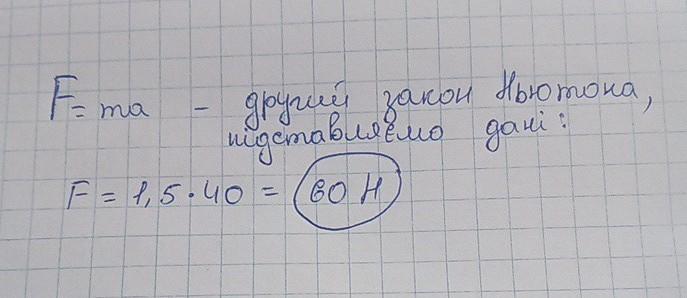 F = ma – другий закон Ньютона,
підставляємо дані:
F = 1,5 · 40 = 60 Н